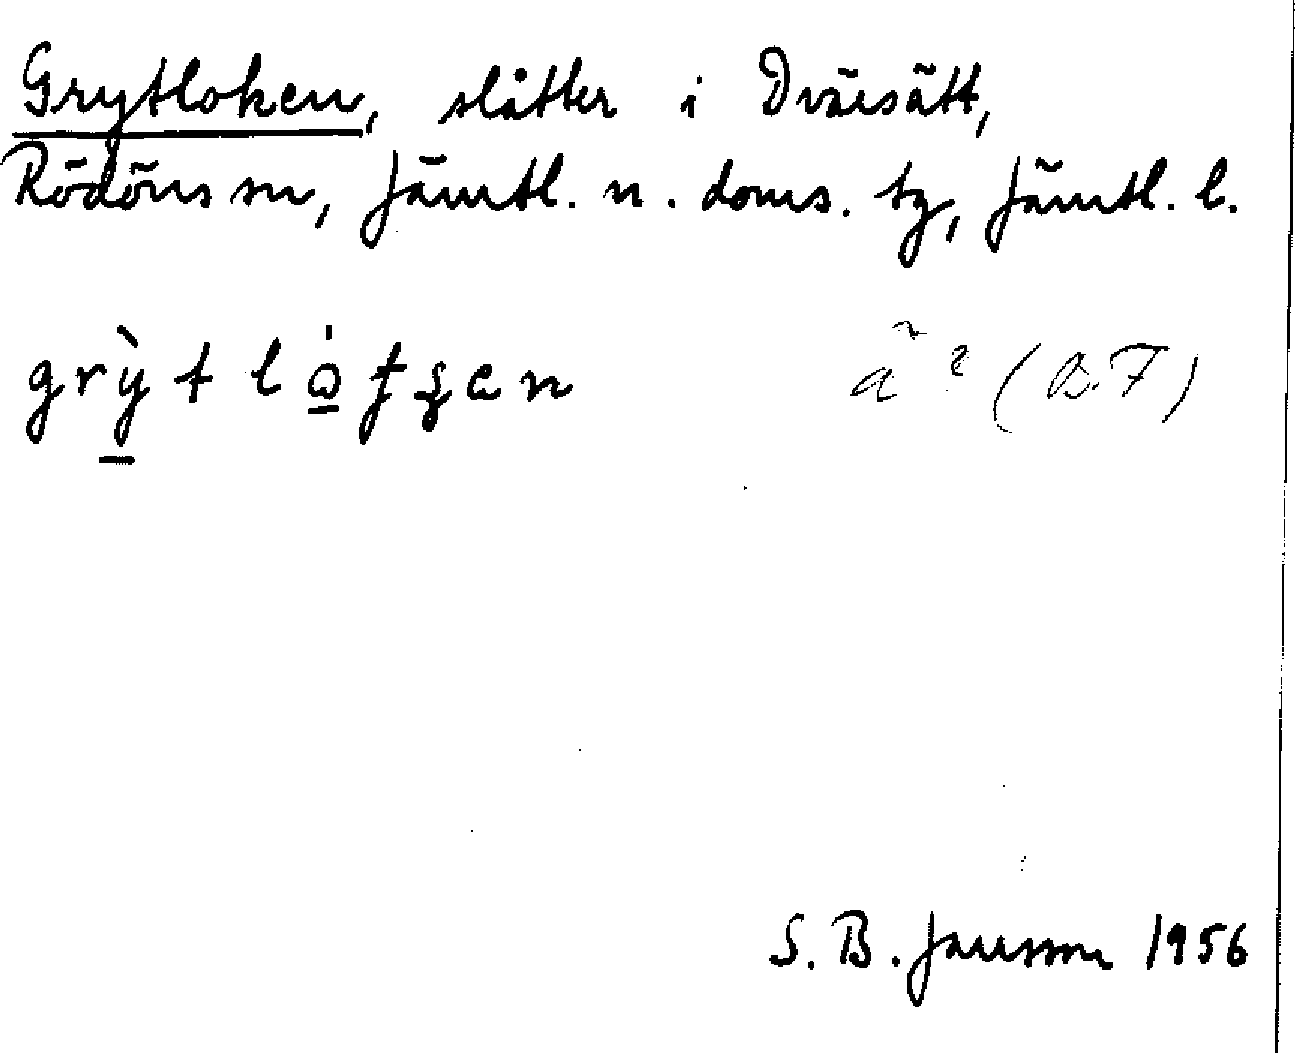 Grytloken, slåtter i Dvärsätt,
Rödöns sn, Jämtl. n. doms. tg, Jämtl. l.
grỳt l
ä 2 (B.F)
S. B. Jansson 1956